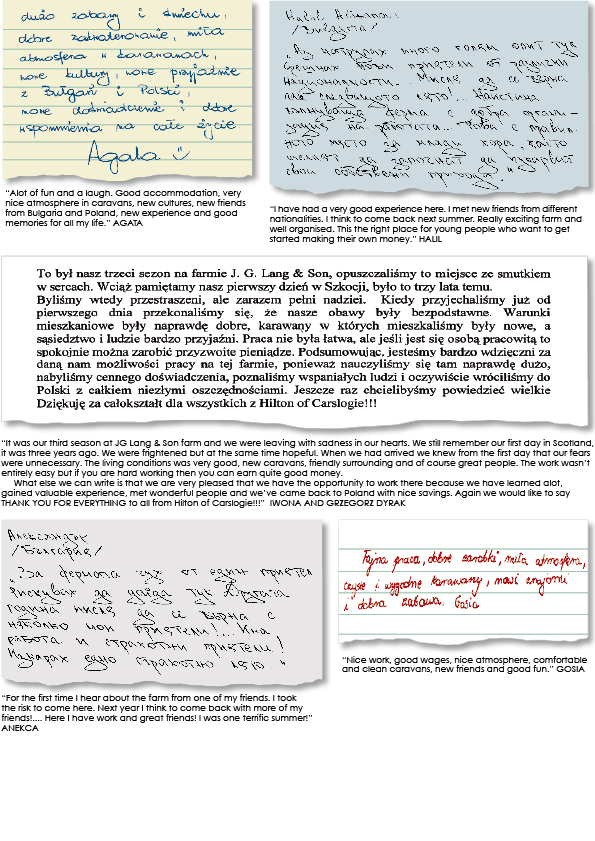 dużo zabawy i śmiechu,
dobre zakwaterowanie, miła
atmosfera w karawanach,
nowe kultury, nowe przyjaźnie
z Bułgarii i Polski,
nowe doświadczenie i dobre
wspomnienia na całe życie
Agata
"Alot of fun and a laugh. Good accommodation, very
nice atmosphere in caravans, new cultures, new friends
from Bulgaria and Poland, new experience and good
memories for all my life." AGATA
/България/
"Аз натрупах много голям опит тук
срещнах нови приятели от различни
националности. Мисля да се върна
пак следващото лято!.. Наистина
ферма с добра органи-
зация на работата. Това е правил-
ното място за млади хора, които
желаят да започнат да изкарват
свои собствени
"I have had a very good experience here. I met new friends from different
nationalities. I think to come back next summer. Really exciting farm and
well organised. This the right place for young people who want to get
started making their own money." HALIL
To był nasz trzeci sezon na farmie J. G. Lang & Son, opuszczaliśmy to miejsce ze smutkiem
w sercach. Wciąż pamiętamy nasz pierwszy dzień w Szkocji, było to trzy lata temu.
Byliśmy wtedy przestraszeni, ale zarazem pełni nadziei. Kiedy przyjechaliśmy już od
pierwszego dnia przekonaliśmy się, że nasze obawy były bezpodstawne. Warunki
mieszkaniowe były naprawdę dobre, karawany w których mieszkaliśmy były nowe, a
sąsiedztwo i ludzie bardzo przyjaźni. Praca nie była łatwa, ale jeśli jest się osobą pracowitą to
spokojnie można zarobić przyzwoite pieniądze. Podsumowując, jesteśmy bardzo wdzięczni za
daną nam możliwości pracy na tej farmie, ponieważ nauczyliśmy się tam naprawdę dużo,
nabyliśmy cennego doświadczenia, poznaliśmy wspaniałych ludzi i oczywiście wróciliśmy do
Polski z całkiem niezłymi oszczędnościami. Jeszcze raz chcielibyśmy powiedzieć wielkie
Dziękuję za całokształt dla wszystkich z Hilton of Carslogie!!!
"It was our third season at JG Lang & Son farm and we were leaving with sadness in our hearts. We still remember our first day in Scotland,
it was three years ago. We were frightened but at the same time hopeful. When we had arrived we knew from the first day that our fears
were unnecessary. The living conditions was very good, new caravans, friendly surrounding and of course great people. The work wasn't
entirely easy but if you are hard working then you can earn quite good money.
What else we can write is that we are very pleased that we have the opportunity to work there because we have learned alot,
gained valuable experience, met wonderful people and we've came back to Poland with nice savings. Again we would like to say
THANK YOU FOR EVERYTHING to all from Hilton of Carslogie!!!" IWONA AND GRZEGORZ DYRAK
/България/
"За фермата чух от един приятел
рискувах да дойда тук. Другата
година мисля да се върна с
няколко мои приятели!... Има
работа и страхотни приятели!
Изкарах едно страхотно лято."
"For the first time I hear about the farm from one of my friends. I took
the risk to come here. Next year I think to come back with more of my
friends!.... Here I have work and great friends! I was one terrific summer!"
ANEKCA
Fajna praca, dobre zarobki, miła atmosfera,
czyste i wygodne karawany, nowi znajomi
i dobra zabawa. Gosia
"Nice work, good wages, nice atmosphere, comfortable
and clean caravans, new friends and good fun." GOSIA